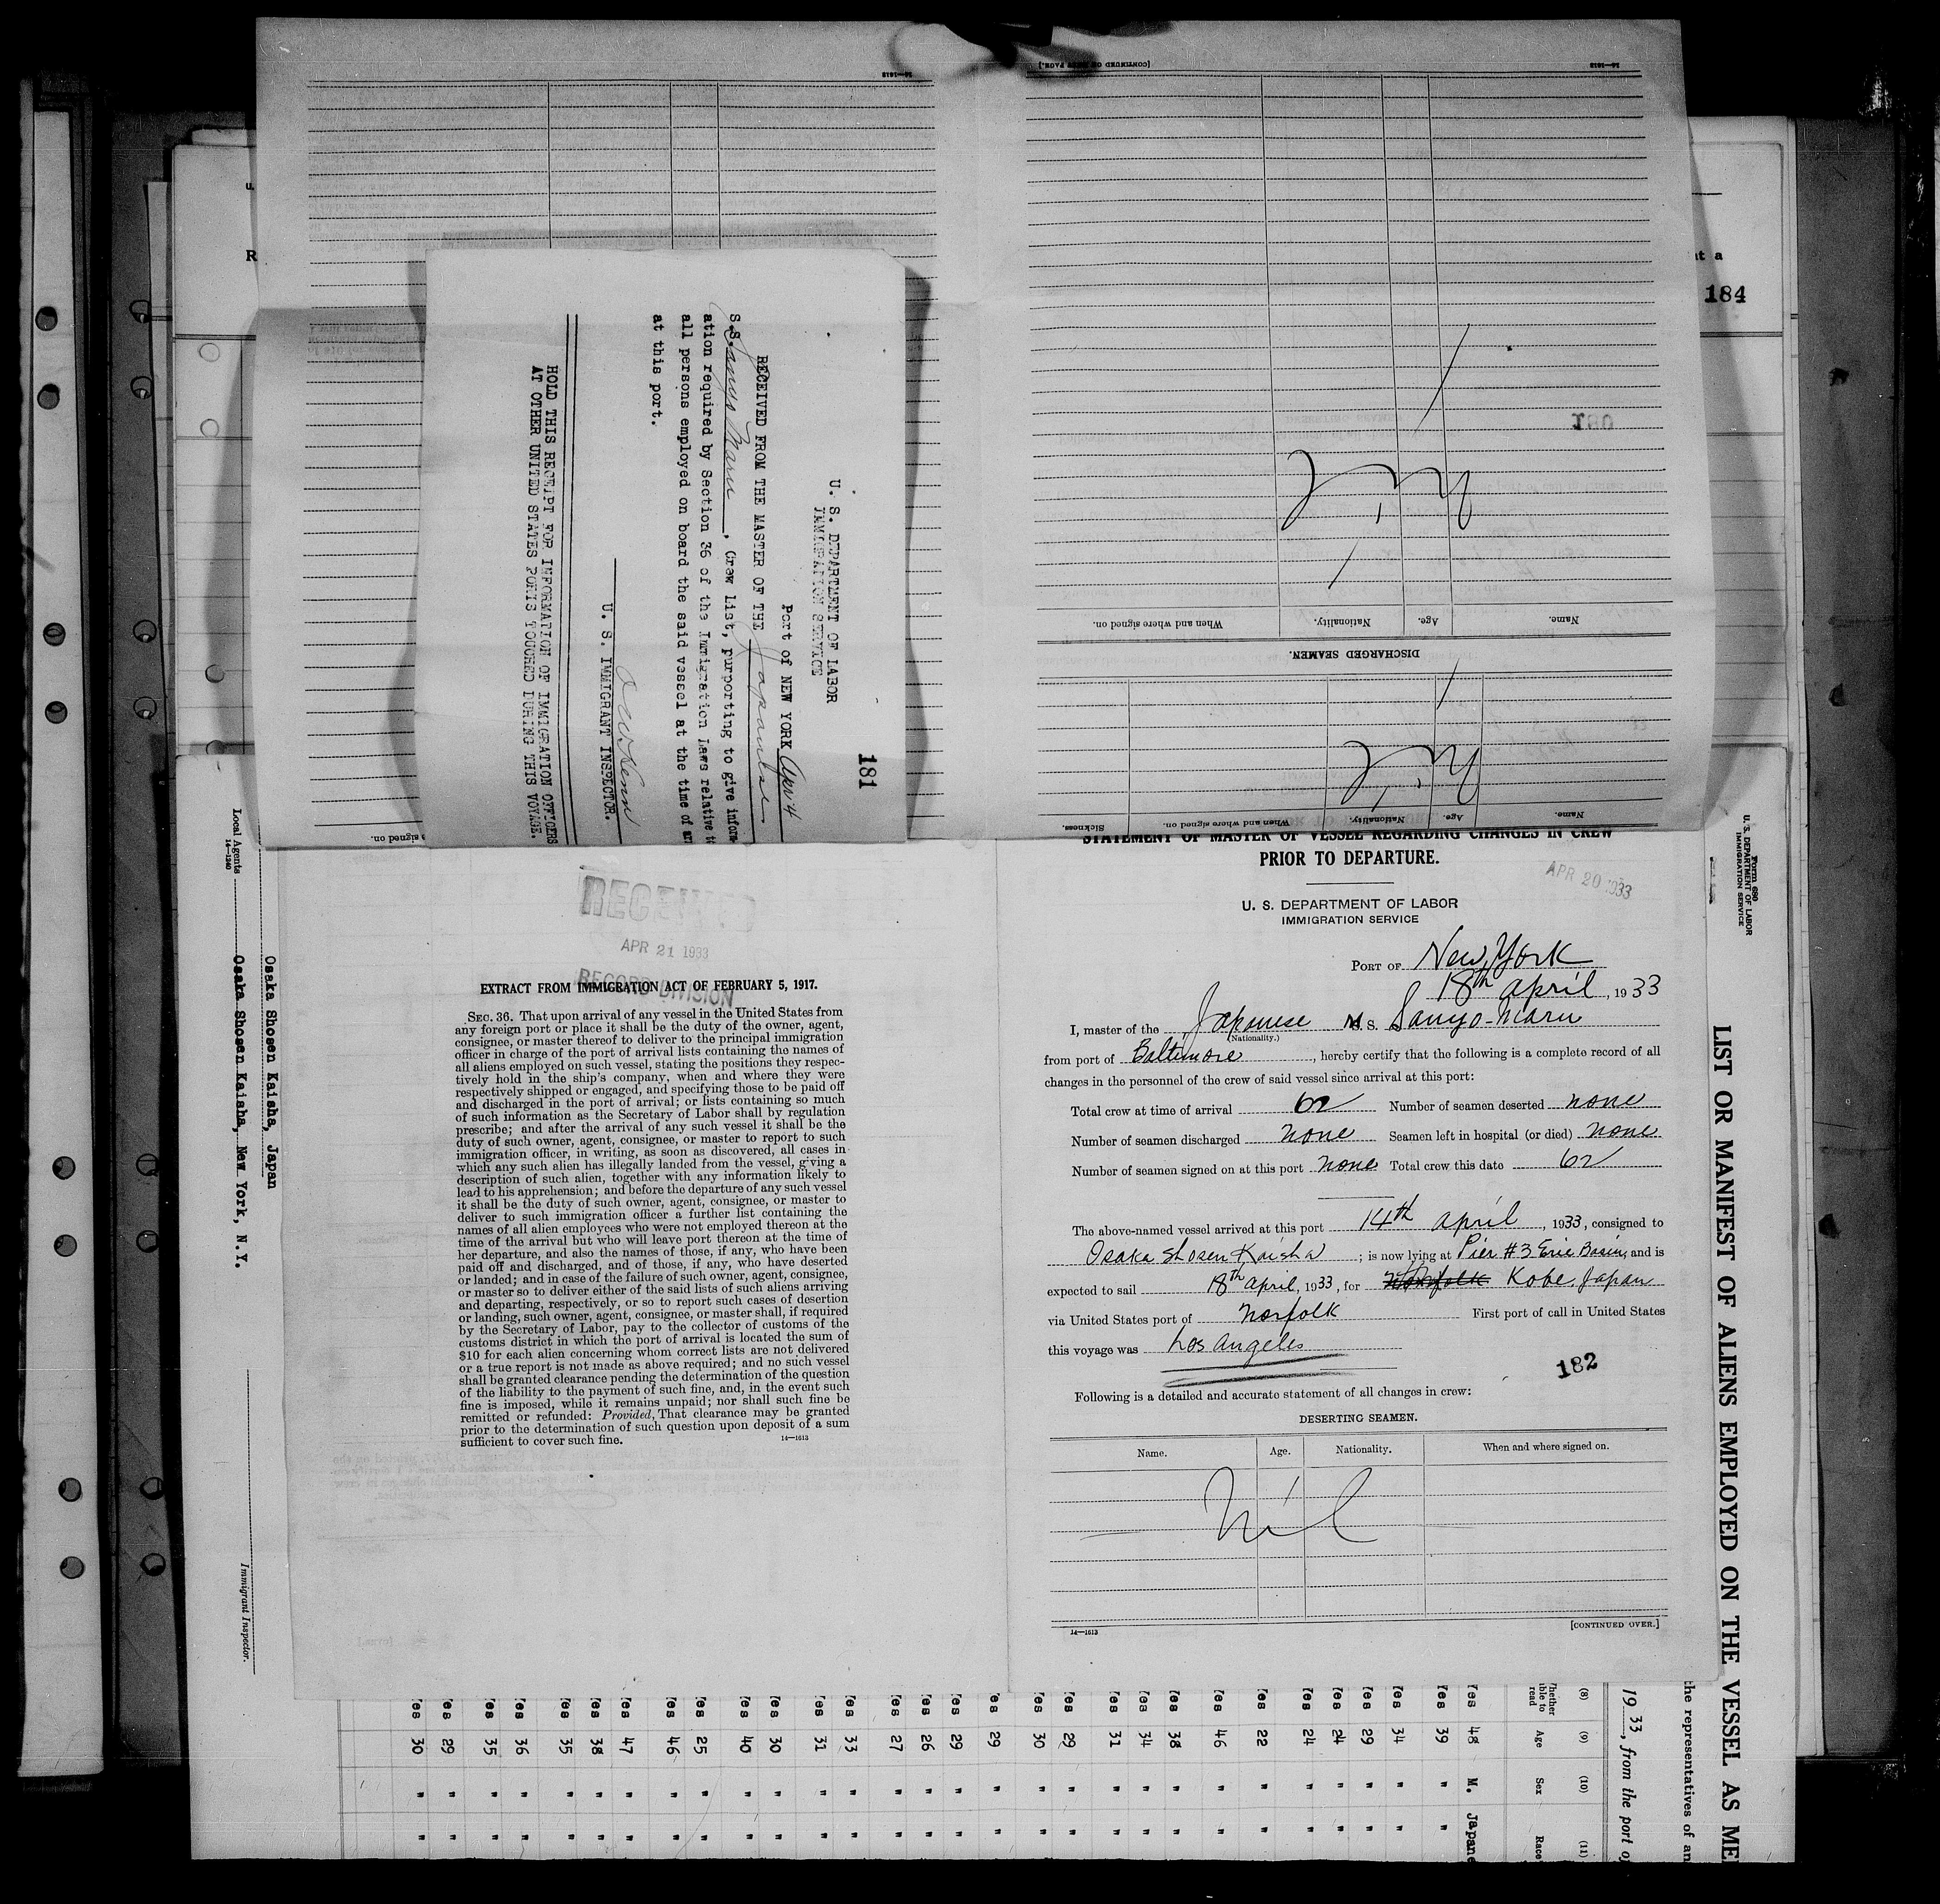 [CONTINUED ON NEXT PAGE.]
14—1613
14—1613
184
Nil
Name.
Age.
Nationality.
When and where signed on.
DISCHARGED SEAMEN.
Nil
Name.
Age.
Nationality.
When and where signed on.
Sickness.
181
U. S. DEPARTMENT OF LABOR
IMMIGRATION SERVICE
Port of NEW YORK
RECEIVED FROM THE MASTER OF THE Japanese
S.S. Sanyo Maru, Crew List, purporting to give inform-
ation required by Section 36 of the Immigration Laws relative to
all persons employed on board the said vessel at the time of
at this port.
U. S. IMMIGRANT INSPECTOR.
HOLD THIS RECEIPT FOR INFORMATION OF IMMIGRATION OFFICERS
AT OTHER UNITED STATES PORTS TOUCHED DURING THIS VOYAGE.
RECEIVED
APR 21 1933
RECORD DIVISION
EXTRACT FROM IMMIGRATION ACT OF FEBRUARY 5, 1917.
SEC. 36. That upon arrival of any vessel in the United States from
any foreign port or place it shall be the duty of the owner, agent,
consignee, or master thereof to deliver to the principal immigration
officer in charge of the port of arrival lists containing the names of
all aliens employed on such vessel, stating the positions they respec-
tively hold in the ship's company, when and where they were
respectively shipped or engaged, and specifying those to be paid off
and discharged in the port of arrival; or lists containing so much
of such information as the Secretary of Labor shall by regulation
prescribe; and after the arrival of any such vessel it shall be the
duty of such owner, agent, consignee, or master to report to such
immigration officer, in writing, as soon as discovered, all cases in
which any such alien has illegally landed from the vessel, giving a
description of such alien, together with any information likely to
lead to his apprehension; and before the departure of any such vessel
it shall be the duty of such owner, agent, consignee, or master to
deliver to such immigration officer a further list containing the
names of all alien employees who were not employed thereon at the
time of the arrival but who will leave port thereon at the time of
her departure, and also the names of those, if any, who have been
paid off and discharged, and of those, if any, who have deserted
or landed; and in case of the failure of such owner, agent, consignee,
or master so to deliver either of the said lists of such aliens arriving
and departing, respectively, or so to report such cases of desertion
or landing, such owner, agent, consignee, or master shall, if required
by the Secretary of Labor, pay to the collector of customs of the
customs district in which the port of arrival is located the sum of
$10 for each alien concerning whom correct lists are not delivered
or a true report is not made as above required; and no such vessel
shall be granted clearance pending the determination of the question
of the liability to the payment of such fine, and, in the event such
fine is imposed, while it remains unpaid; nor shall such fine be
remitted or refunded: Provided, That clearance may be granted
prior to the determination of such question upon deposit of a sum
sufficient to cover such fine.
14—1613
STATEMENT OF MASTER OF VESSEL REGARDING CHANGES IN CREW
PRIOR TO DEPARTURE.
APR 20 1933
U. S. DEPARTMENT OF LABOR
IMMIGRATION SERVICE
PORT OF New York
18th April, 1933
I, master of the Japanese M.S. Sanyo-Maru
(Nationality.)
from port of Baltimore, hereby certify that the following is a complete record of all
changes in the personnel of the crew of said vessel since arrival at this port:
Total crew at time of arrival 62 Number of seamen deserted none
Number of seamen discharged none Seamen left in hospital (or died) none
Number of seamen signed on at this port none Total crew this date 62
The above-named vessel arrived at this port 14th April, 1933, consigned to
Osaka Shosen Kaisha; is now lying at Pier #3 Erie Basin, and is
expected to sail 18th April, 1933, for Norfolk Kobe, Japan
via United States port of Norfolk First port of call in United States
this voyage was Los Angeles
182
Following is a detailed and accurate statement of all changes in crew:
DESERTING SEAMEN.
Name. Age. Nationality. When and where signed on.
Nil
14—1613
[CONTINUED OVER.]
Osaka Shosen Kaisha, Japan
Local Agents Osaka Shosen Kaisha, New York, N.Y.
14—1240
Immigrant Inspector.
Form 680
U. S. DEPARTMENT OF LABOR
IMMIGRATION SERVICE
LIST OR MANIFEST OF ALIENS EMPLOYED ON THE VESSEL AS ME
the representatives of an
1933, from the port of
(8) (9) (10) (11)
Whether able to read Age Sex Race
Yes 48 M. Japane
Yes 39 " "
Yes 34 " "
Yes 29 " "
Yes 24 " "
Yes 24 " "
Yes 22 " "
Yes 46 " "
Yes 38 " "
Yes 34 " "
Yes 31 " "
Yes 29 " "
Yes 30 " "
Yes 29 " "
Yes 29 " "
Yes 26 " "
Yes 27 " "
Yes 33 " "
Yes 31 " "
Yes 30 " "
Yes 40 " "
Yes 25 " "
Yes 46 " "
Yes 47 " "
Yes 38 " "
Yes 35 " "
Yes 36 " "
Yes 35 " "
Yes 29 " "
Yes 30 " "